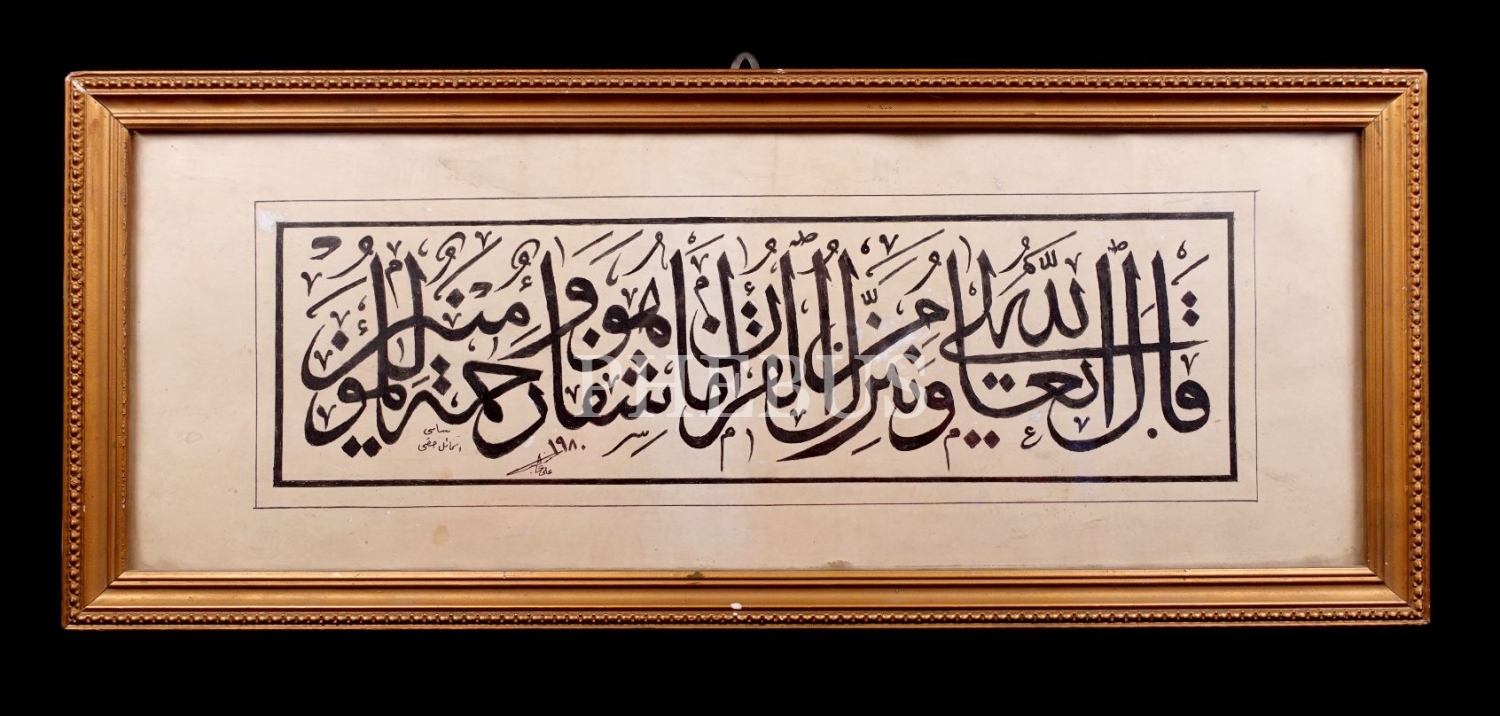 قَالَ اللّٰهُ تَعَالٰى وَنُنَزِّلُ مِنَ الْقُرْاٰنِ مَا هُوَ شِفَاءٌ وَرَحْمَةٌ لِلْمُؤْمِنِينَ
١٩٨٠
PHEBUS